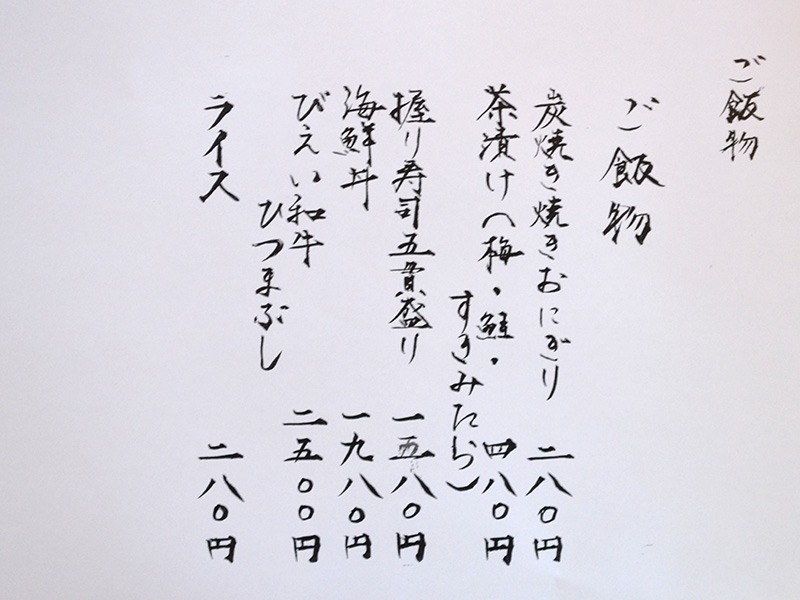 ご飯物
ご飯物
炭焼き焼きおにぎり 二八〇円
茶漬け(梅・鮭・ 四八〇円
すきみたら)
握り寿司五貫盛り 一五八〇円
海鮮丼 一九八〇円
びえい和牛 二五〇〇円
ひつまぶし
ライス 二八〇円